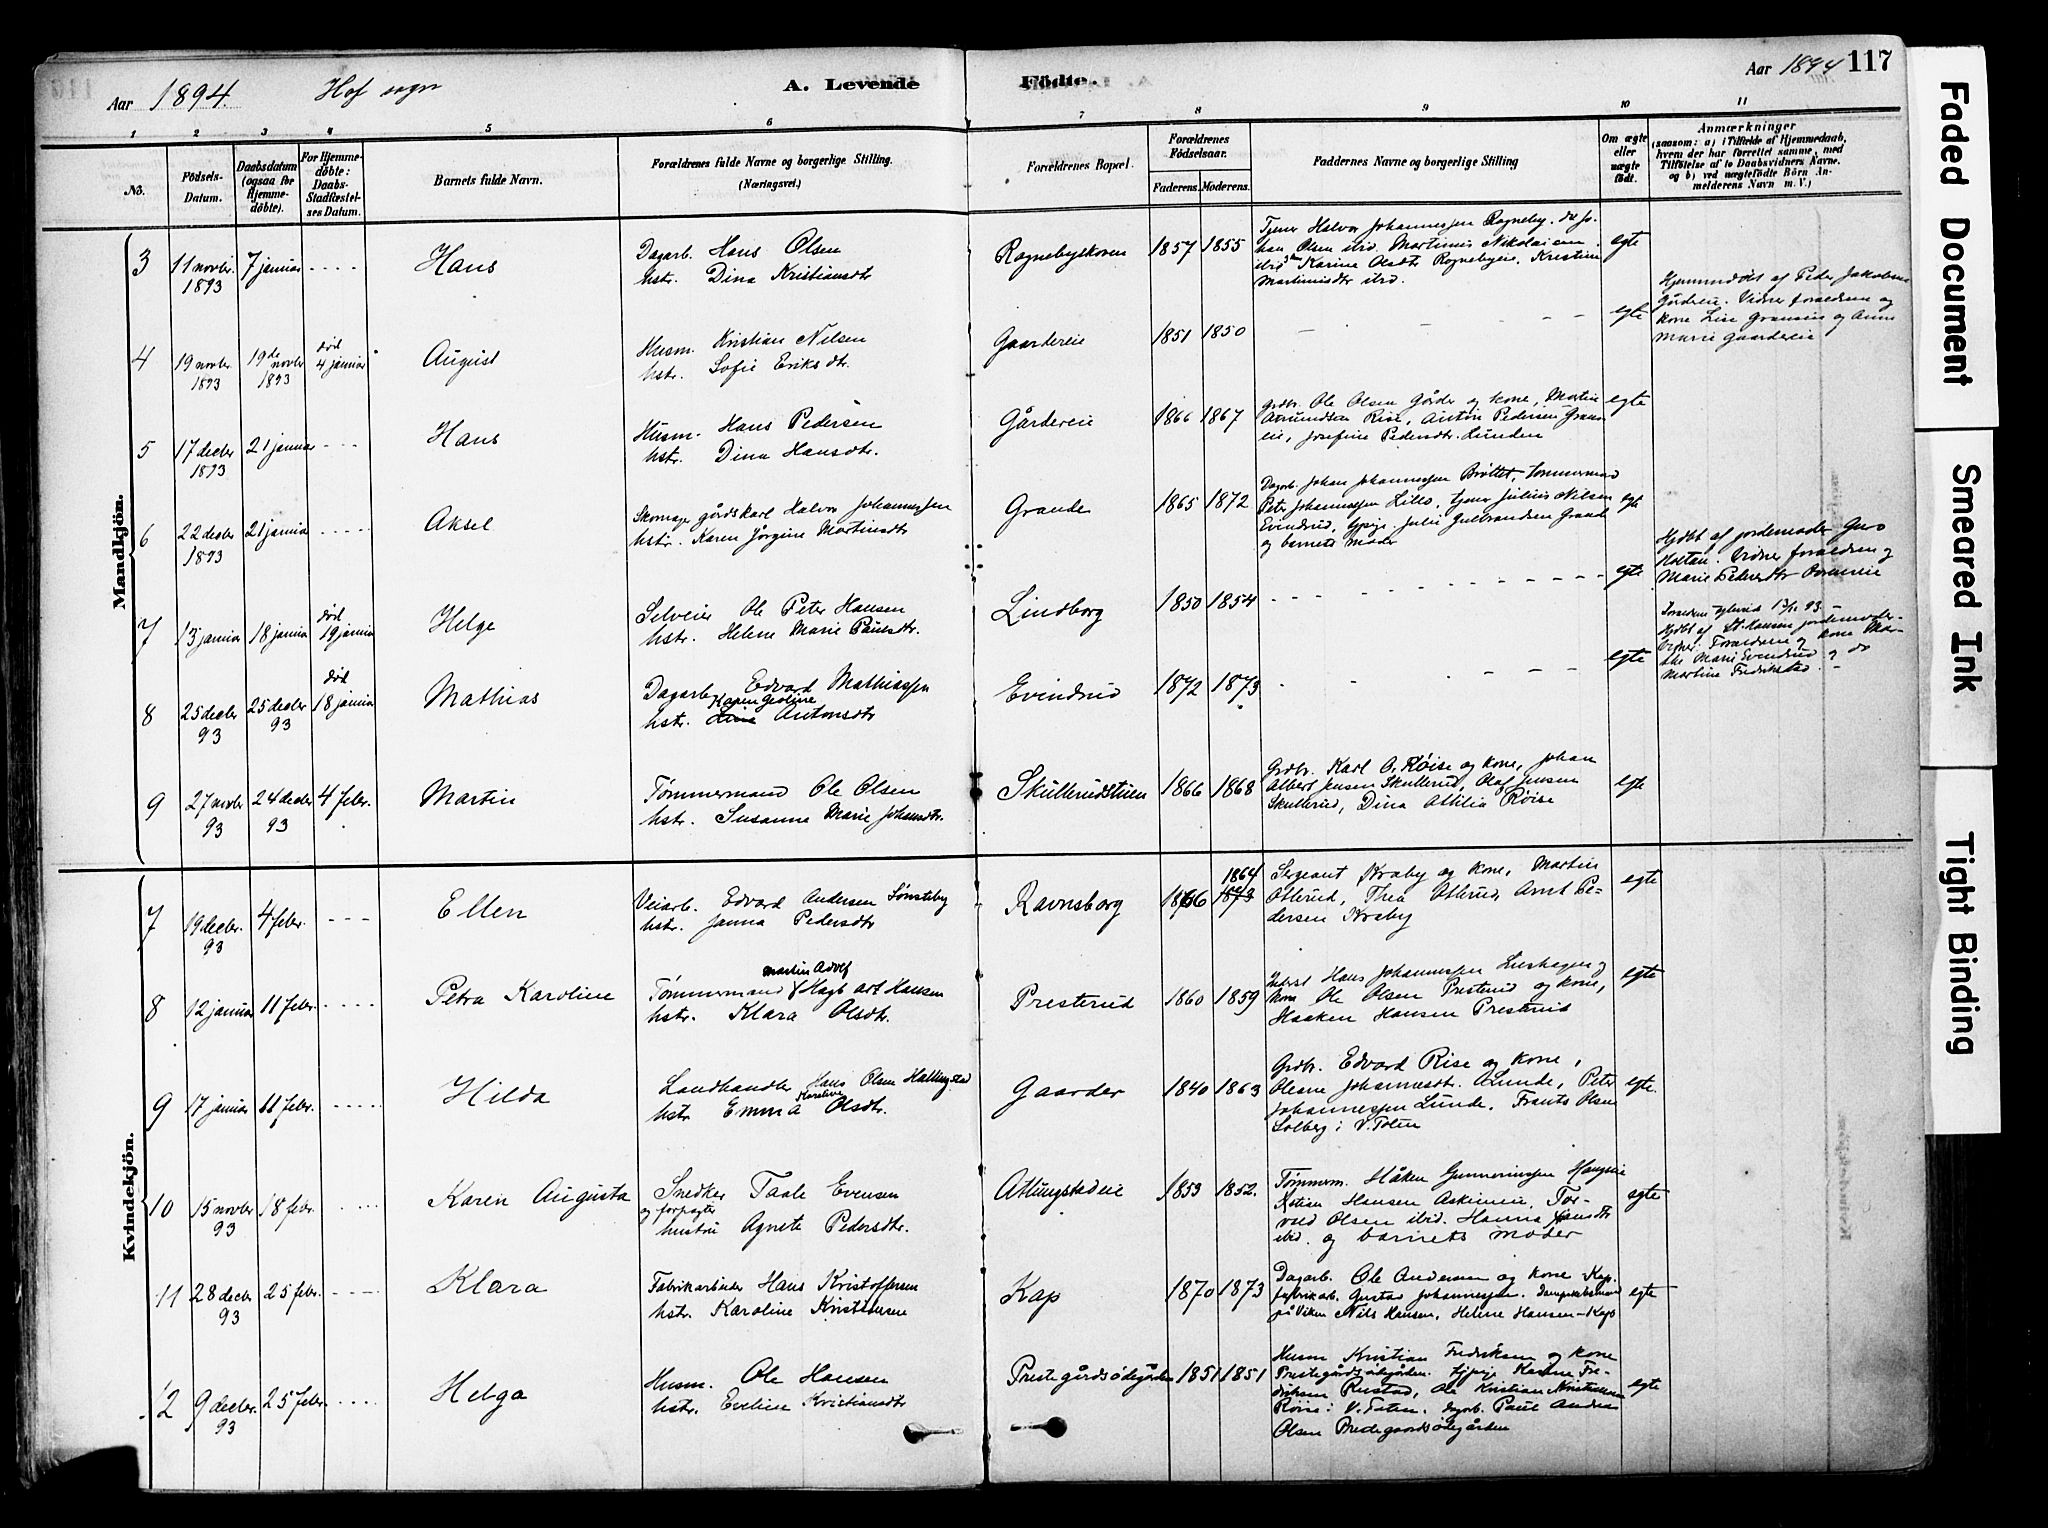 Aar 1894. Hof sogn A. Levende Födte. Aar 1894 117
1 2 3 4 5 6 7 8 9 10 11
No. Födsels-Datum. Daabsdatum (ogsaa for Hjemmedöbte). For Hjemmedöbte: Daabs-Stadfæstelses Datum. Barnets fulde Navn. Forældrenes fulde Navne og borgerlige Stilling. (Næringsvei.) Forældrenes Bopæl. Forældrenes Födselsaar. Faderens. Moderens. Faddernes Navne og borgerlige Stilling Om ægte eller uægte födt. Anmærkninger (saasom: a) i Tilfælde af Hjemmedaab, hvem der har forrettet samme, med Tilföielse af to Daabsvidners Navne. og b) ved uægtefödte Börn Anmelderens Navn m. V.)
Mandkjön.
3 11 novbr. 1893 7 januar - - - - Hans
Dagarb. Hans Olsen
hstr. Dina Kristiansdtr
Rognebyskoven 1857 1855
Tjener Halvor Johannessen Rogneby. do Johan Olsen ibid. Martinus Nikolaisen ibid Karine Olsdtr Rognebyeie, Kristine Martinusdtr ibid.
egte
4 19 novbr. 1893 19de novbr 1893 död 4 januar August
Husm. Kristian Nilsen
hstr. Sofie Eriksdtr.
Gaardereie 1851 1850
egte
Hjemmedöbt af Peder Jakobsen Gårdereie. Vidner foraeldrene og kone Lise Graneeie og Anne Marie Gaardereie
5 17 decbr 1893 21 januar - - - Hans
Husm. Hans Pedersen
hstr. Dina Hansdtr.
Gårdereie 1866 1867
Grdbr. Ole Olsen Gårder og kone, Martin Amundsen Rise, Anton Pedersen Graneeie, Josefine Pedersdtr. Lunden
egte
6 22 decbr 1893 21 januar - - - - Aksel
Skomager gårdskarl Halvor Johannessen
hstr. Karen Jørgine Martinsdtr
Grande 1865 1872
Dagarb. Johan Johannessen Bråttet, Tømmermand Peter Johannessen Lillo, tjener Julius Nilsen Evindrud, tjpige Julie Gulbrandsen Grande og barnets moder
egte
7 13 januar 18 januar död 19 januar Helge
Selveier Ole Peter Hansen
hstr. Helene Marie Paulsdtr.
Lindborg 1850 1854
egte
Hjdöbt af jordemoder Guro Holtan. Vidner foraeldrene og Marie Pedersdtr
8 25 decbr 93 25 decbr 93 död 18 januar Mathias
Dagarb. Edvard Mathiassen
Karen Geoline
hstr. Lina Antonsdtr
Evindrud 1872 1873
egte
Hjdöbt af St. Hansen jordemoder. Vidner: Foraeldrene og kone Marthe Marie Evindrud og do Martine Fredrikstad
9 27 novbr 93 24 decbr 93 4 febr. Martin
Tømmermand Ole Olsen
hstr. Susanne Marie Johansdtr.
Skullerudstuen 1866 1868
Grdbr. Karl O. Røise og kone, Johan Albert Jensen Skullerud, Olaf Jensen Skullerud, Dina Attilia Røise
egte
Kvindekjön.
7 19 decbr. 93 4 febr. - - - Ellen
Veiarb. Edvard Andersen Sønsteby
hstr. Janna Pedersdtr
Ravnsborg 1866 1864 1873
Sergeant Kraby og kone, Martin Otterud, Thea Otterud, Arnt Pedersen Kraby
egte
8 12 januar 11 febr. - - - - Petra Karoline
Martin Adolf
Tømmermand Hagbart Hansen
hstr. Klara Olsdtr.
Presterud 1860 1859
Hans Johannessen Lushagen og kone Ole Olsen Presterud og kone, Haaken Hansen Presterud
egte
9 17 januar 11 febr. - - - - - Hilda
Landhandler Hans Olsen Hallingstad
hstr Emma Karoline Olsdtr.
Gaarder 1840 1863
Grdbr. Edvard Rise og kone, Olesine Johannesdtr. Lunde, Peter Johannessen Lunde, Frants Olsen Solberg i V. Toten
egte.
10 15 novbr 93 18 febr. Karen Augusta
Snedker og forpagter Taale Evensen
hustru Agnete Pedersdtr.
Atlungstadeie 1853 1852.
Tømmerm. Håken Gunneriussen Haugseie Kristian Hansen Askimeie, Torvald Olsen ibid. Hanna Hansdtr ibid. og barnets moder
egte
11 28 decbr 93 25 febr. - - - - Klara
Fabrikarbeider Hans Kristoffersen
hstr. Karoline Kristiansen
Kap 1870 1873
Dagarb. Ole Andersen og kone Kap. fabrikarb. Gustav Johannessen, på Viken Nils Hansen, Helene Hansen - Kap
egte
12 9 decbr. 93 25 febr. - - - - Helga
Husm. Ole Hansen
hstr. Eveline Kristiansdtr
Prestegårdsødegården 1851 1851
Husm Kristian Fredriksen og kone Prestegårdsødegården. tjpige Karen Fredriksen Rustad, Ole Kristian Kristiansen Røise i V. Toten. dagarb. Paul Andreas Olsen Prestegaardsødegården
egte
Faded Document
Smeared Ink
Tight Binding